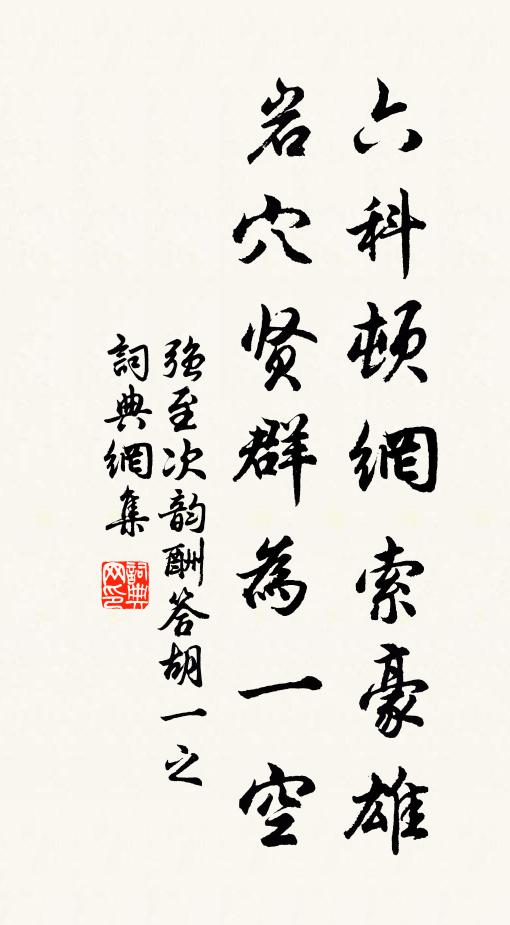 六科頓網索豪雄
岩穴贤群為一空
强至次韵酬答胡一之
詞典網集
詞典网印